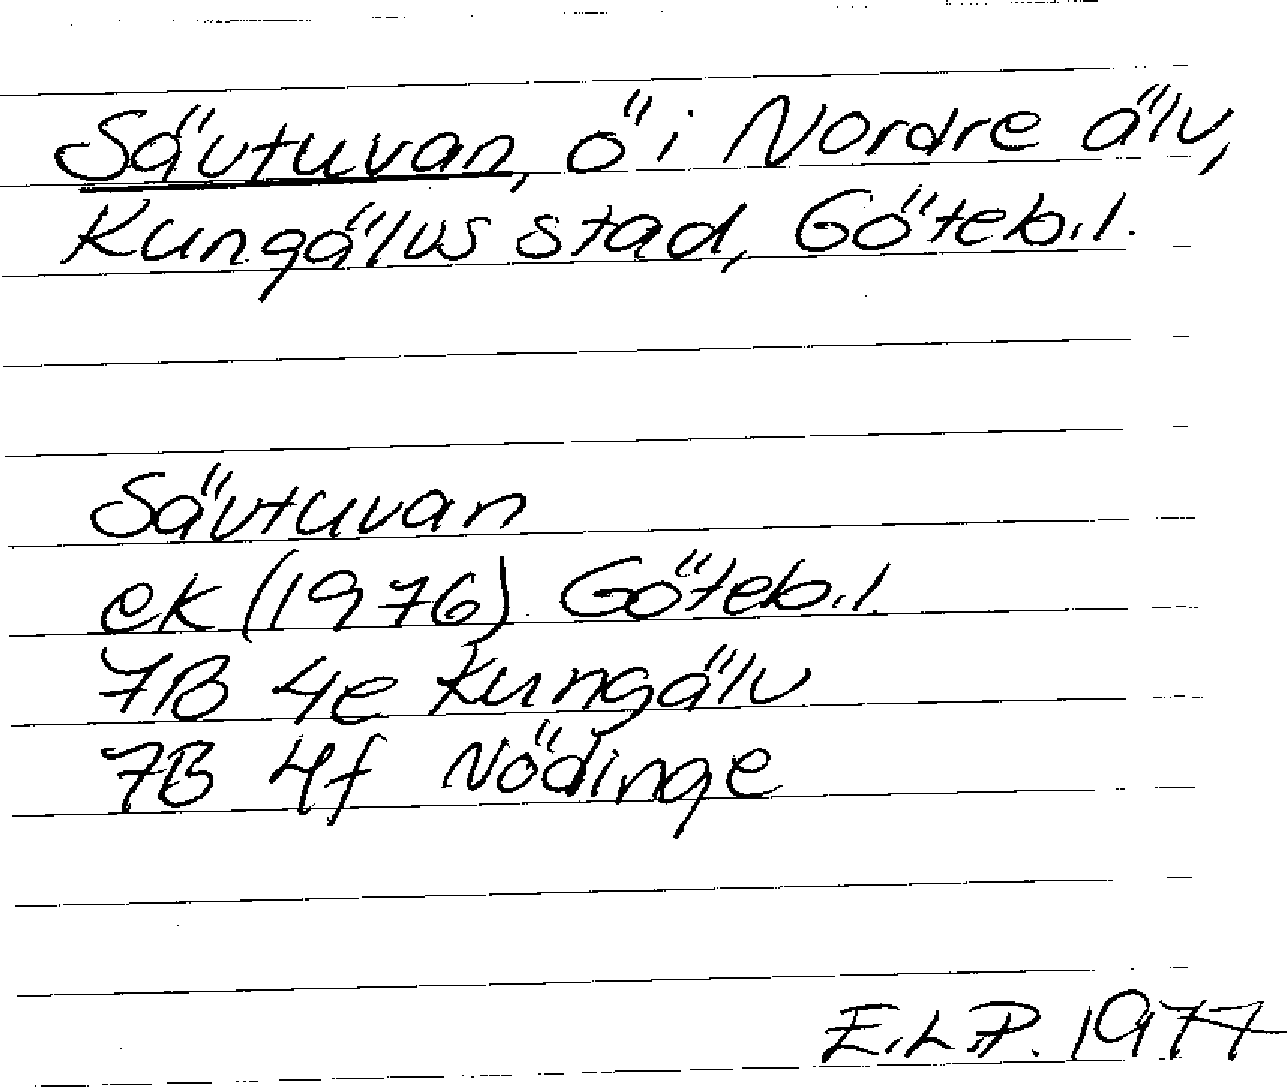 Sävtuvan, ö i Nordre älv,
Kungälvs stad, Göteb.l.
Sävtuvan
ek (1976) Göteb.l.
7B 4e Kungälv
7B 4f Nödinge
E.L.P. 1977